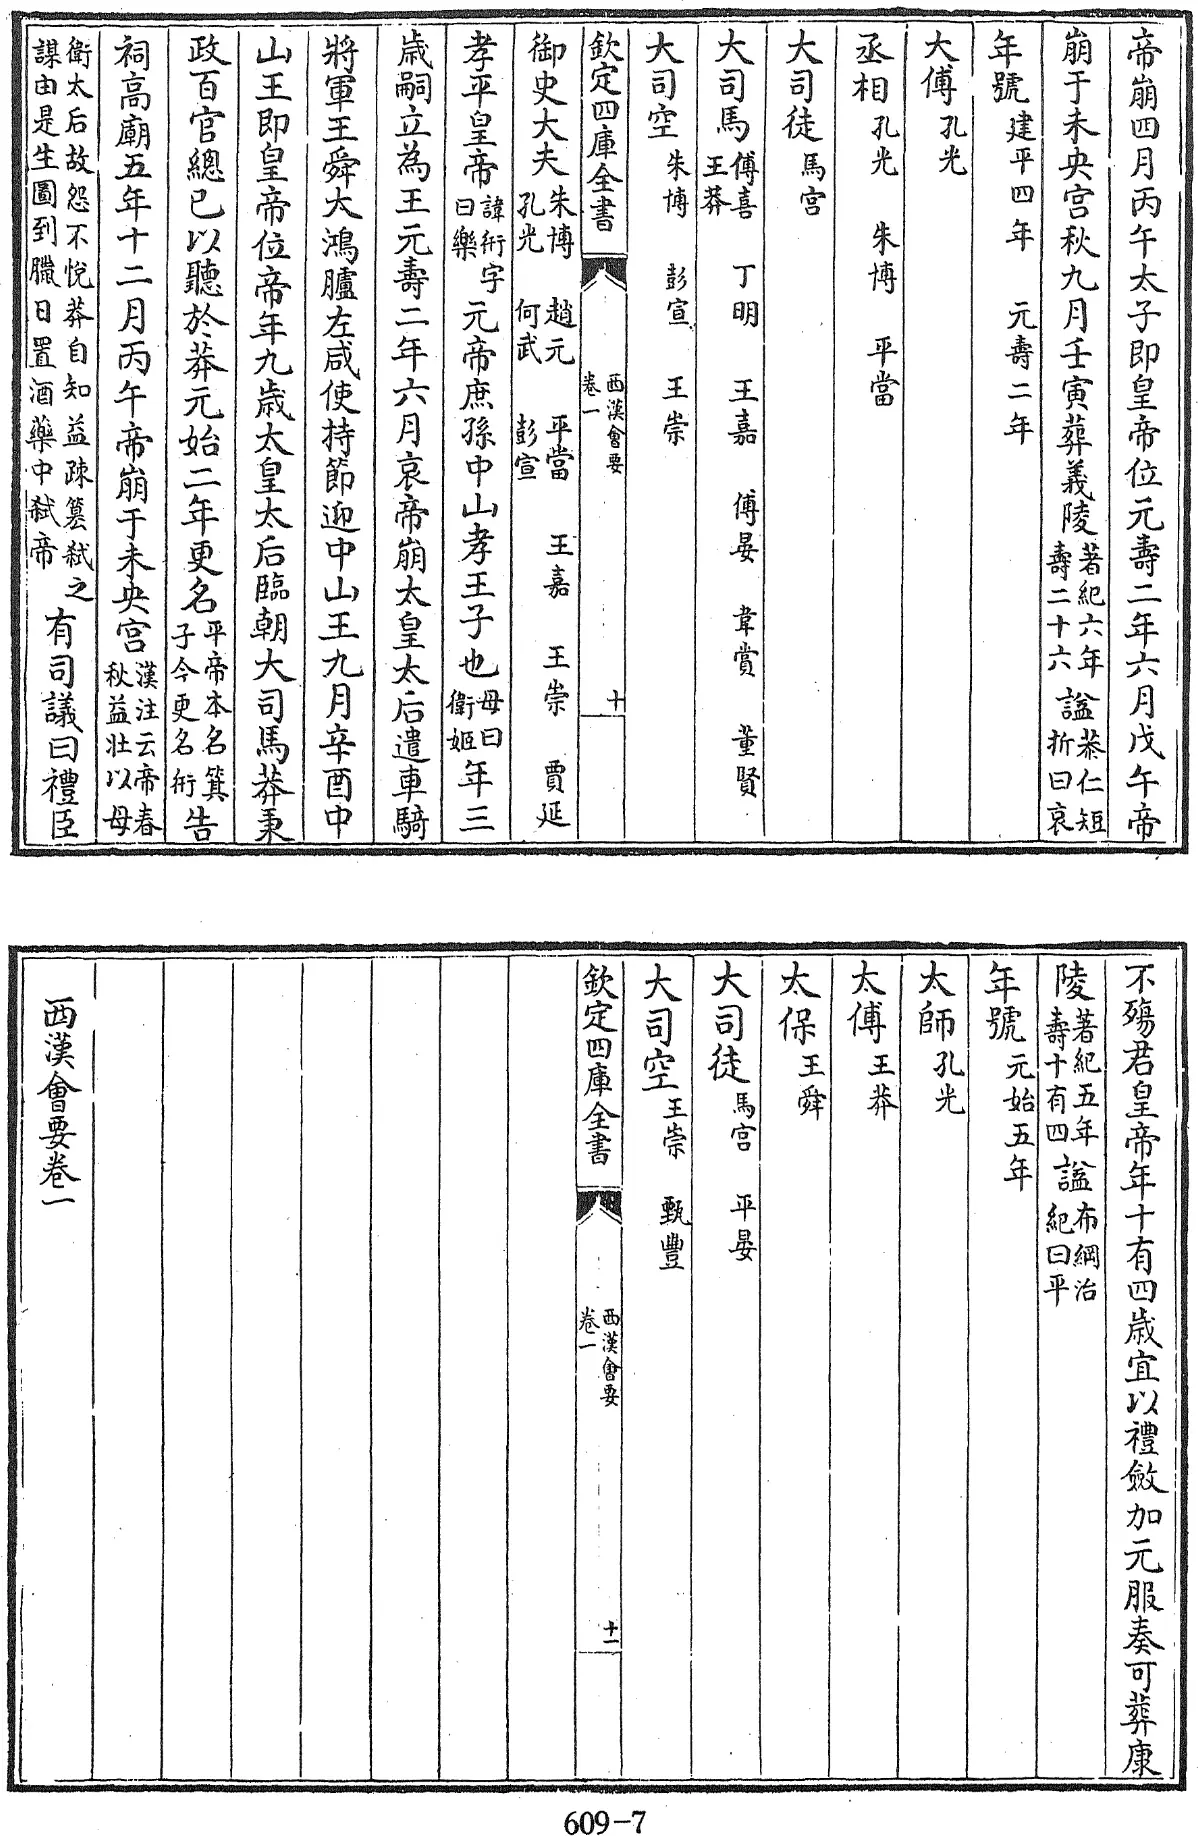 帝崩四月丙午太子即皇帝位元壽二年六月戊午帝
崩于未央宫秋九月壬寅葬義陵著紀六年壽二十六諡恭仁短折曰哀
年號建平四年 元壽二年
大傅孔光
丞相孔光 朱博 平當
大司徒馬宫
大司馬傅喜王莽 丁明 王嘉 傅晏 韋賞 董賢
大司空朱博 彭宣 王崇
欽定四庫全書 西漢會要卷一 十
御史大夫朱博孔光 趙元何武 平當彭宣 王嘉 王崇 賈延
孝平皇帝諱衎字曰樂元帝庶孫中山孝王子也母曰衛姬年三
歲嗣立為王元壽二年六月哀帝崩太皇太后遣車騎
將軍王舜大鴻臚左咸使持節迎中山王九月辛酉中
山王即皇帝位帝年九歲太皇太后臨朝大司馬莽秉
政百官總已以聽於莽元始二年更名平帝本名箕子今更名衎告
祠高廟五年十二月丙午帝崩于未央宫漢注云帝春秋益壯以母
衛太后故怨不悅莽自知益疎篡弒之謀由是生圖到臘日置酒藥中弒帝有司議曰禮臣
不殤君皇帝年十有四歲宜以禮斂加元服奏可葬康
陵著紀五年壽十有四諡布綱治紀曰平
年號元始五年
太師孔光
太傅王莽
太保王舜
大司徒馬宫 平晏
大司空王崇 甄豐
欽定四庫全書 西漢會要卷一 十一
西漢會要卷一
609-7